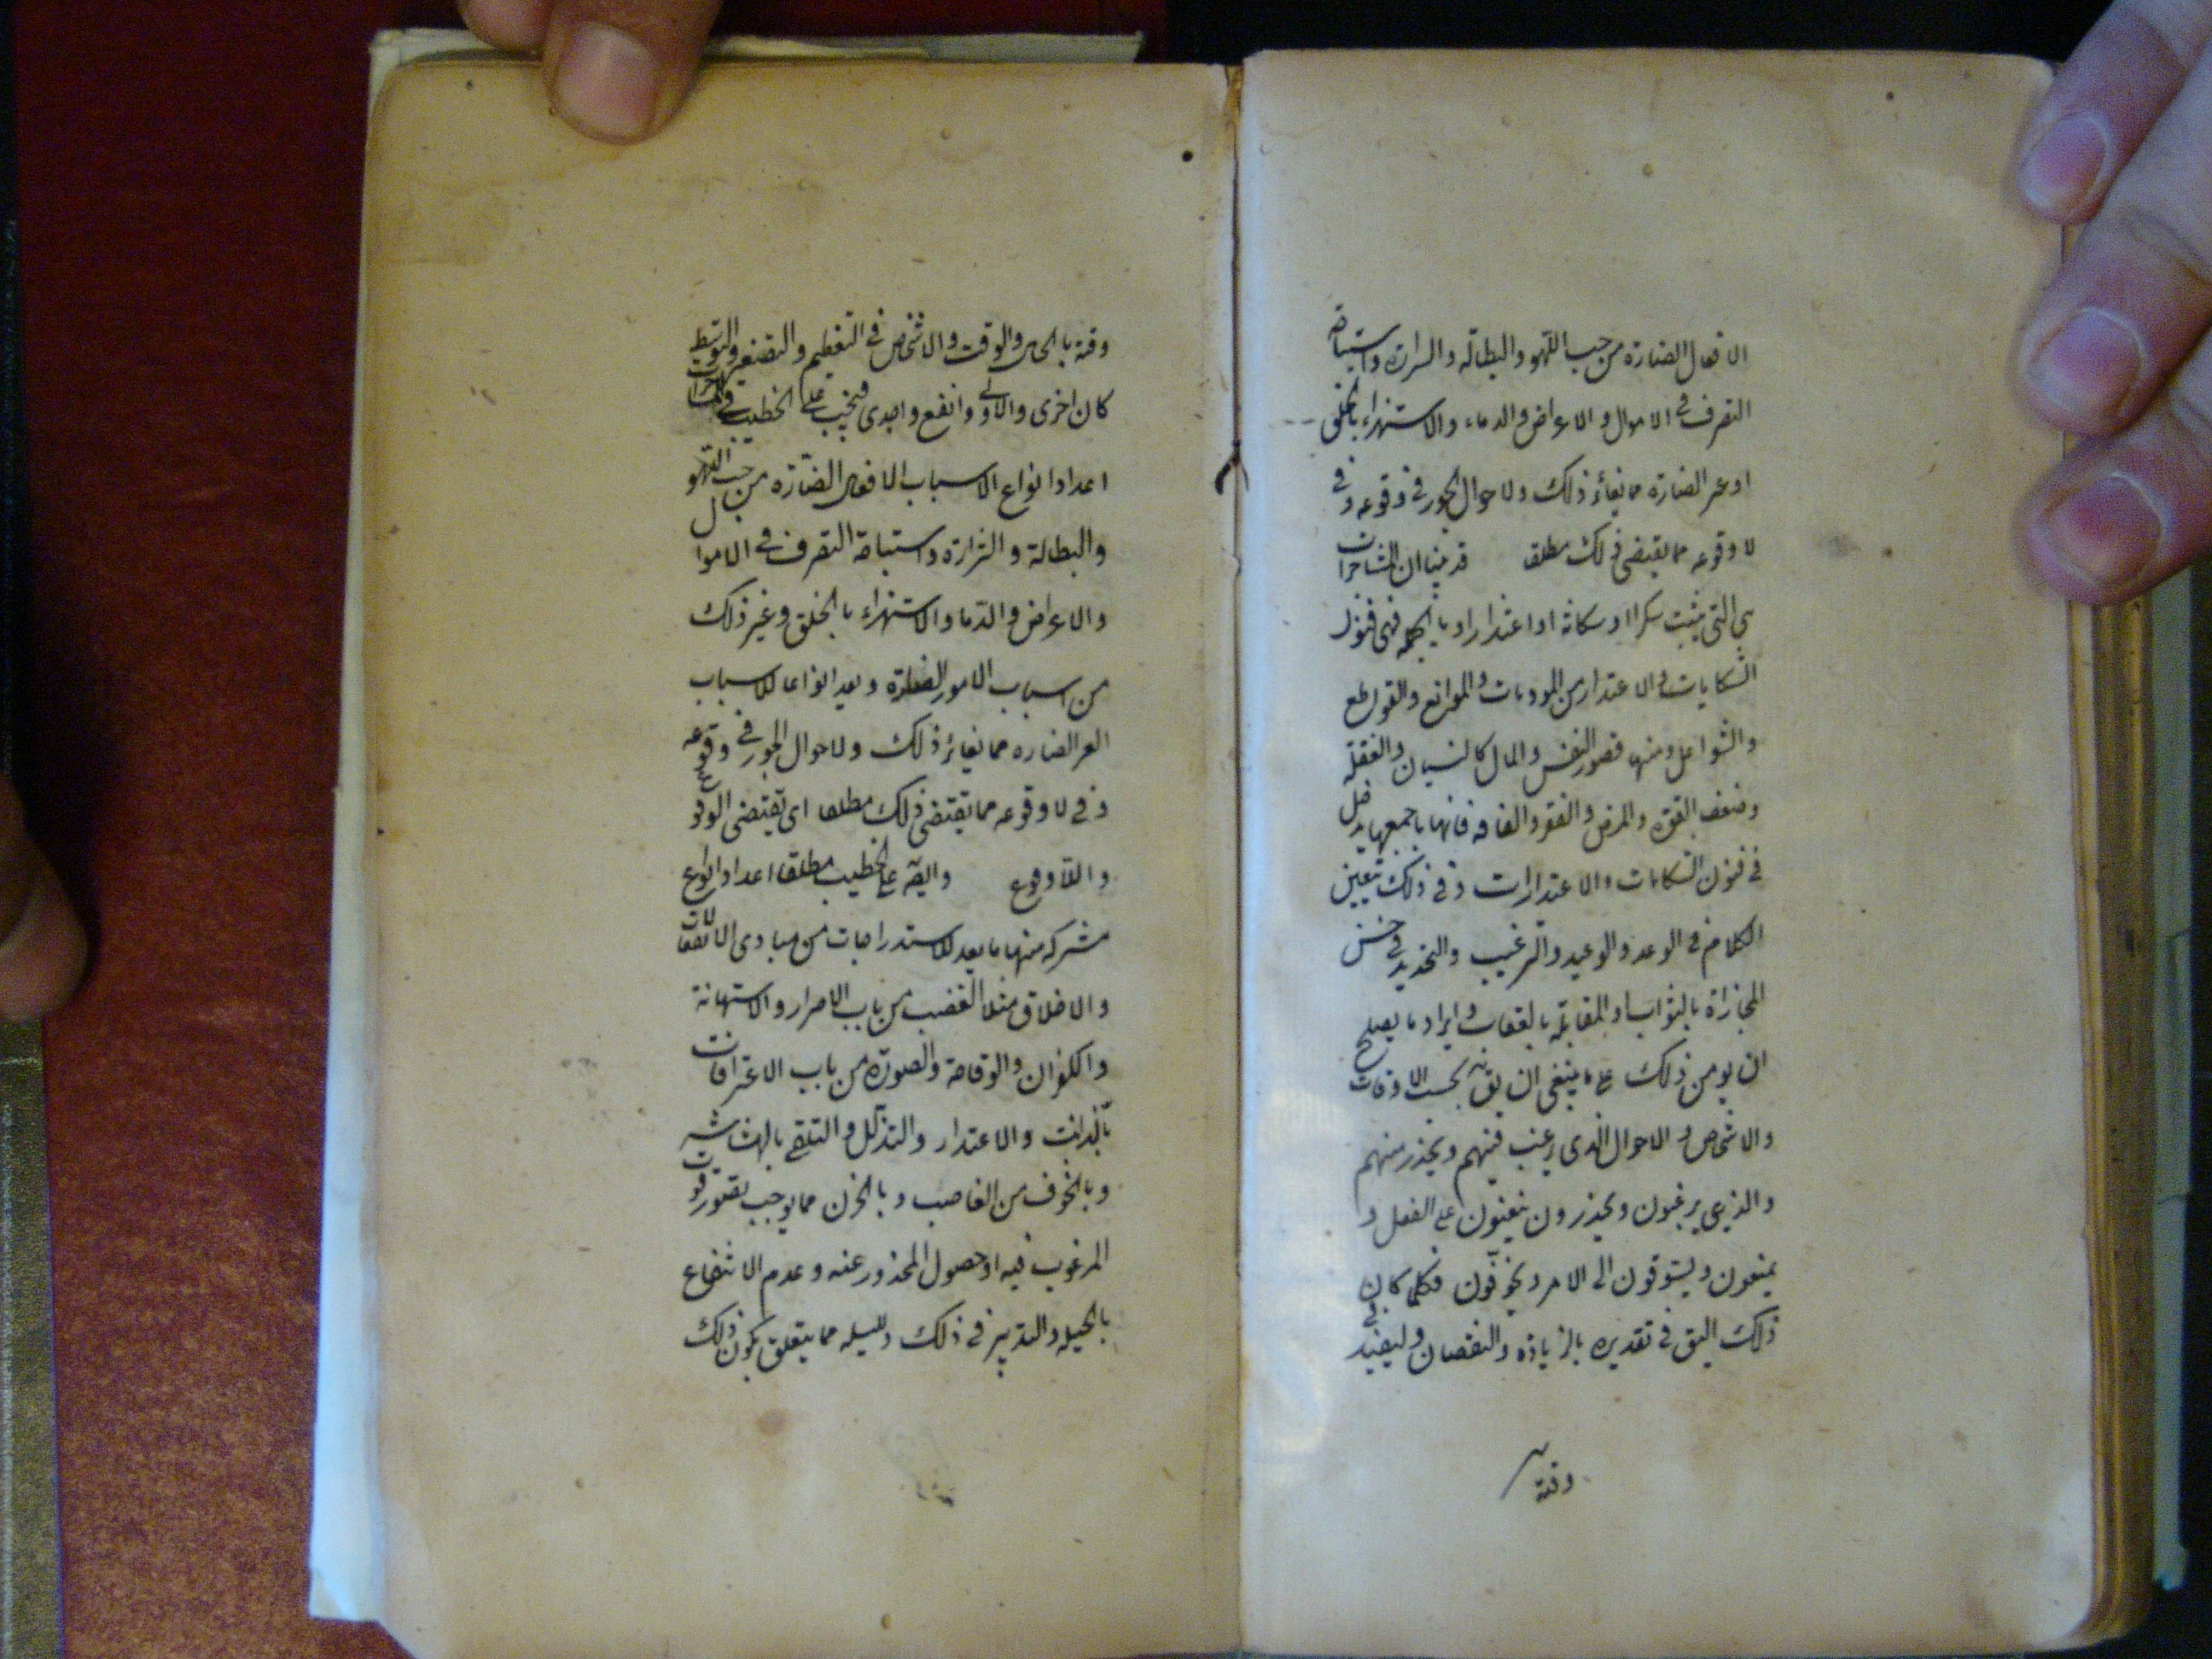 الافعال الضارة من حب اللهو والبطالة والشرارة واستباحة
التصرف فى الاموال والاعراض والدماء والاستهزاء بالخلق
او غير الضارة مما يغائر ذلك ولاحوال الجور فى وقوعه وفى
لا وقوعه مما يقتضى ذلك مطلقا قد بينا ان المشاجرات
هى التى يثبت شكرا او شكاية او اعتذارا وبالجملة فهى فنون
الشكايات والاعتذار من المودعات والموانع والقواطع
والشواغل ومنها قصور النفس والمال كالنسيان والغفلة
وضعف القوة والمرض والفقر والفاقه فانها باجمعها يدخل
فى فنون الشكايات والاعتذارات وفى ذلك تبيين
الكلام فى الوعد والوعيد والترغيب والتحذير فى حسن
المجازاة بالثواب والمقابلة بالعقاب وايراد ما يصلح
ان يو من ذلك على ما ينبغى ان يق به بحسب الاوقات
والاشخاص والاحوال الذى يرغب فيهم ويحذر منهم
والذين يرغبون ويحذرون يعينون على الفعل و
يمنعون ويشوقون الى الامر ويخوفون فكلما كان
ذلك اليق فى تقديره بالزيادة والنقصان وليفيد فى
وقته
وقته بالحال والوقت والاشخاص فى التعظيم والتصغير والتوسط
كان احرى والاولى وانفع واجدى فيجب على الخطيب فى المشاجرات
اعداد انواع الاسباب الافعال الضارة من حب اللهو
والبطالة والشرارة واستباحة التصرف فى الاموال
والاعراض والدما والاستهزاء بالخلق وغير ذلك
من اسباب الامور الضارة ويعد انواعا للاسباب
الغير الضاره مما يغائر ذلك ولاحوال الجور فى وقوعه
وفى لا وقوعه مما يقتضى ذلك مطلقا اى يقتضى الوقوع
واللاوقوع وايضه على الخطيب مطلقا اعداد انواع
مشتركه منها ما يعد للاستدراجات من مبادى الانفعالات
والاخلاق مثلا الغضب من باب الاصرار والاستهانة
والكفران والوقاحة والصورة من باب الاعترافات
بالذنب والاعتذار والتذلل والتلقى بالبشاشه
وبالخوف من الغاصب وبالحزن مما يوجب تصور فوت
المرغوب فيه او حصول المحذور عنه وعدم الانتفاع
بالحيله والتدبير فى ذلك مما يتعلق بكون ذلك